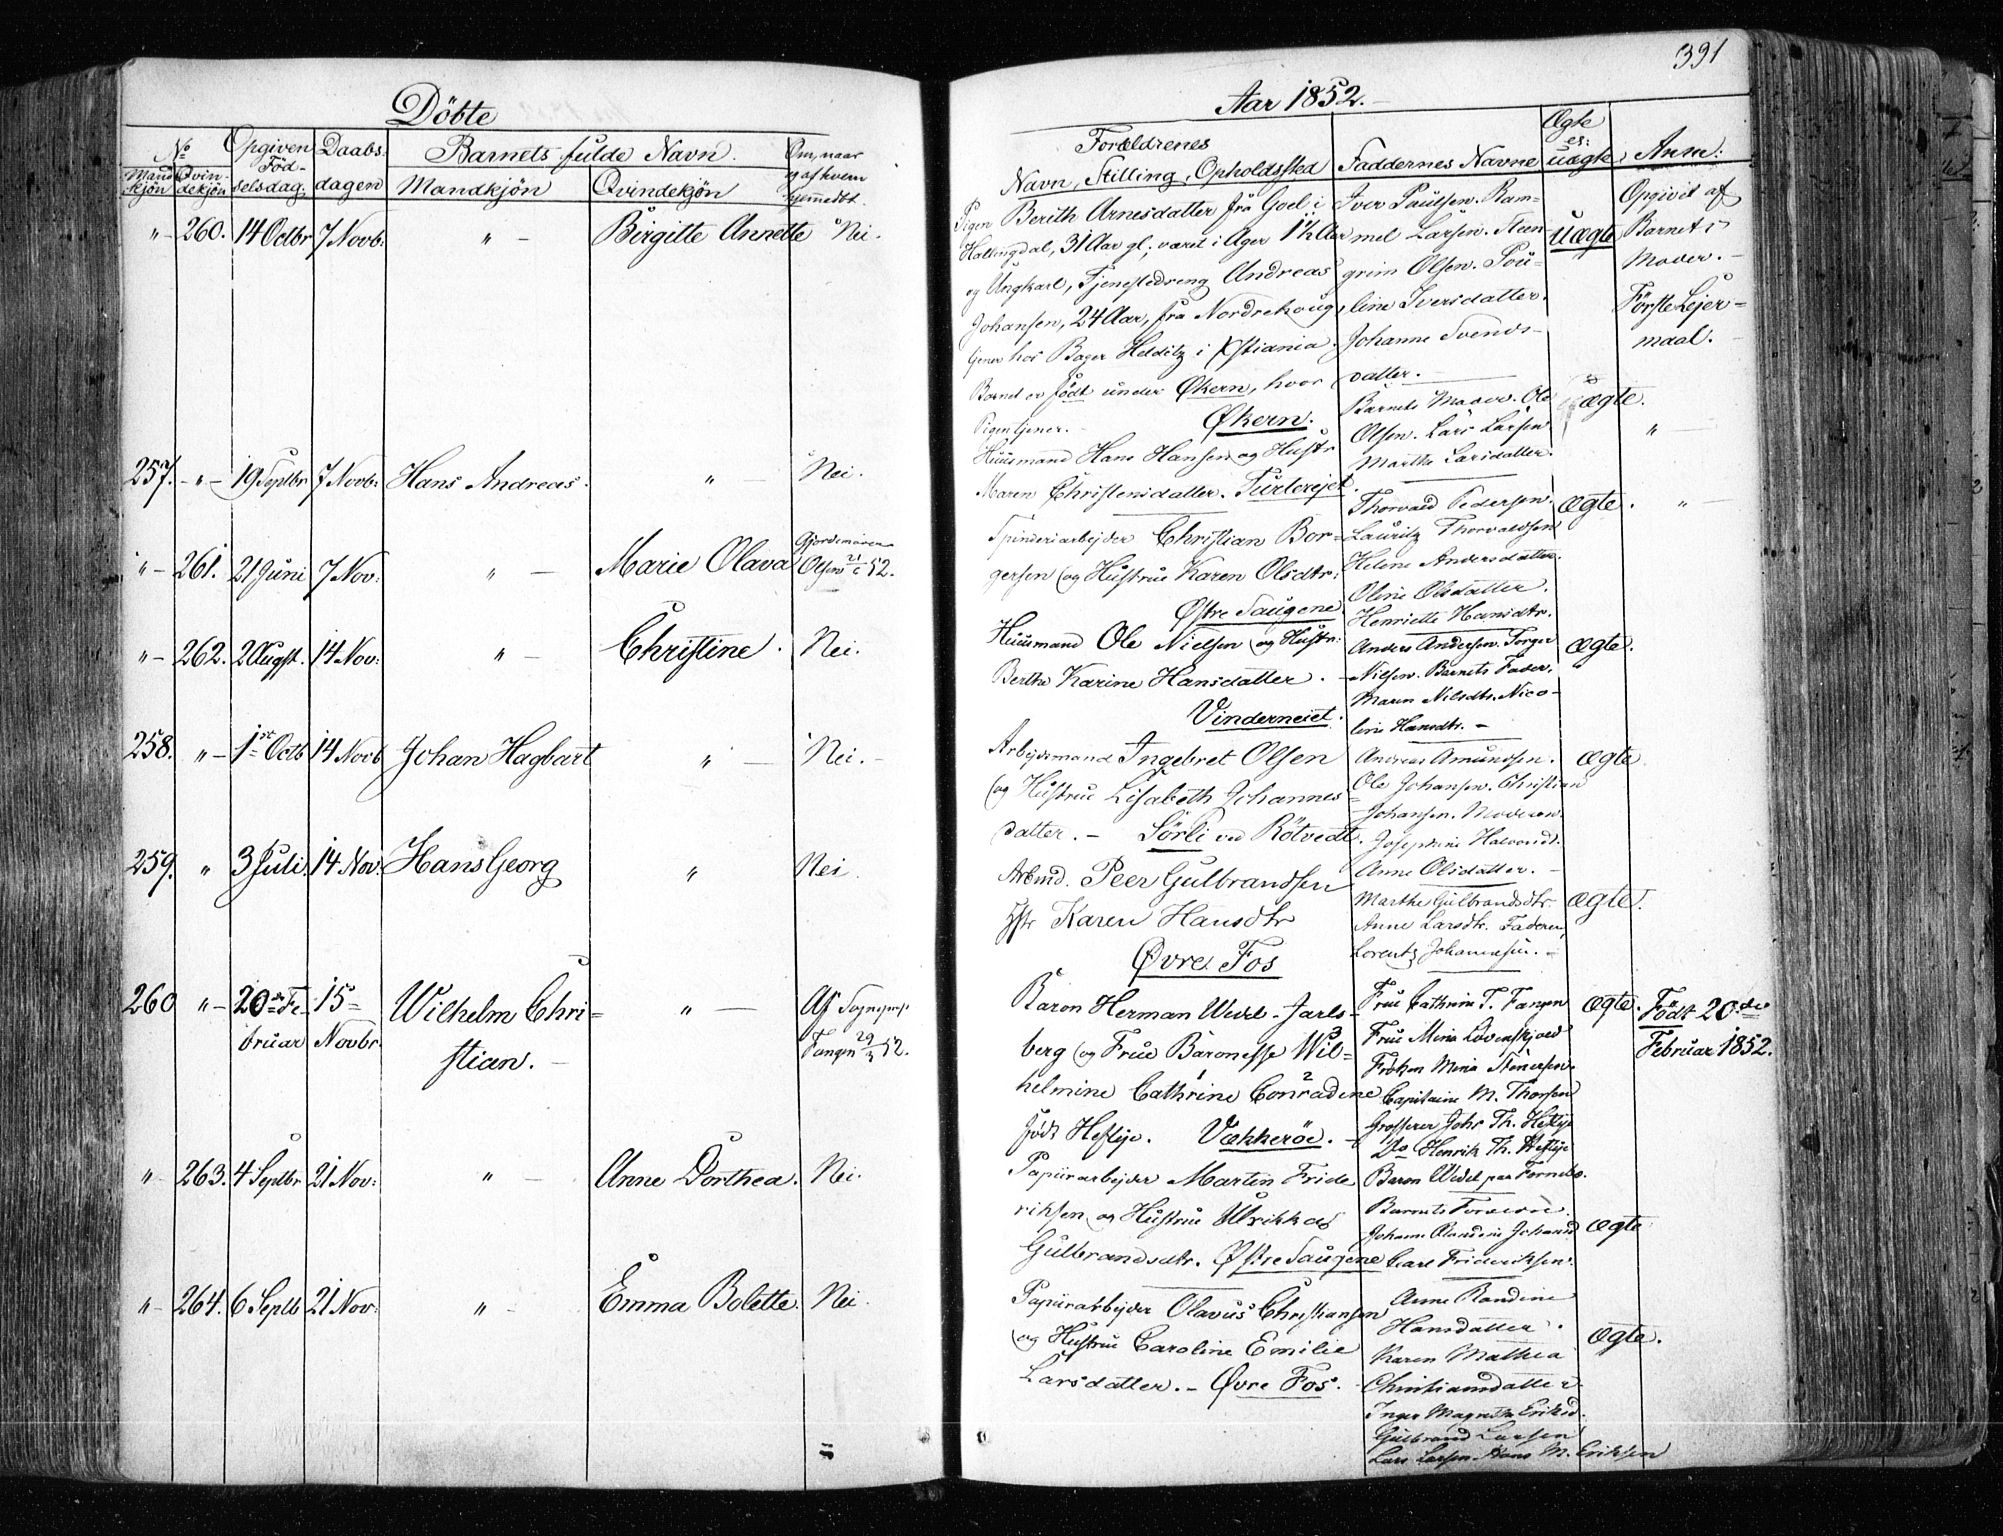 391
Döbte
Aar 1852.
No
Mandkjön
Qvindekjön
Opgiven Födselsdag.
Daabsdagen
Barnets fulde Navn.
Mandkjön
Qvindekjön
Om, naar og af hvem hjemedöbt.
Forældrenes
Navn, Stilling, Opholdssted
Faddernes Navne
Ægte el: uægte
Anm:
"- 260. 14 Octbr 7 Novb: " - Birgitte Annette Nei.
Pigen Berith Arnesdatter fra Goel i
Hallingdal, 31 Aar gl; været i Ager 1½ Aar
og Ungkarl, Tjenestedreng Andreas
Johansen, 24 Aar, fra Nordrehoug,
tjener hos Bager Helditz i Xstiania.
Barnet er födt under Økern, hvor
Pigen tjener. - Økern.
Iver Paulsen. Ram-
mel Larsen. Steen
grim Olsen. Pou-
line Iversdatter.
Johanne Svends-
datter.
Uægte
Opgivet af
Barnets
Moder. -
Förste Lejer-
maal.
257. - " - 19 Septbr 7 Novb: Hans Andreas. " - Nei.
Huusmand Hans Hansen og Hustr
Maren Christensdatter. Turterejet.
Barnets Moder. Ole
Olsen. Lars Larsen
Marthe Larsdatter.
ægte.
" -
"- 261. 21 Juni 7 Nov: " - Marie Olava
Gjordemoderen
Olsen 21/6 52.
Spinderiarbejder Christian Bor-
gersen og Hustrue Karen Olsdtr:
Østre Saugene.
Thorvald Pedersen.
Lauritz Thorvaldsen
Helene Andersdatter.
Oline Olsdatter.
Henriette Hansdtr.
Ægte.
" -
"- 262. 2 Augst. 14 Nov: " - Christine. Nei.
Huusmand Ole Nielsen og Hustr:
Berthe Karine Hansdatter. -
Vinderneiet.
Anders Andersen. Torger
Nilsen. Barnets Fader.
Maren Nilsdtr. Nico-
line Hansdtr. -
Ægte.
258. " - 1st Octb 14 Novb Johan Hagbart " - Nei. -
Arbejdsmand Ingebret Olsen
og Hustrue Lisabeth Johannes-
datter. - Sörli ved Rötvedt.
Andreas Amundsen.
Ole Johansen. Christian
Johansen. Moderen.
Josephine Halvorsd.
Anne Olsdatter. -
Ægte
259. " 3 Juli. 14 Nov: Hans Georg " Nei.
Arbmd. Peer Gulbrandsen
Hstr Karen Hansdtr
Øvre Fos
Marthe Gulbrandsdtr.
Anne Larsdtr. Faderen,
Lorentz Johannesen. -
Ægte.
260 " - 20de Fe- 15- Wilhelm Chri- " - Af Sognepr.
bruar Novbr. stian. - Fangen 29/3 52.
Baron Herman Wedel-Jarls-
berg og Frue Baronesse Wil-
helmine Cathrine Conradine
födt Heftye. Vækkeröe. -
Frue Cathrine T. Fangen
Frue Mina Lövenskjold
Fröken Mina Stenersen.
Capitaine M. Thorsen
Grosserer Johs Th. Heftye
Do Henrik Th. Heftye
Baron Wedel paa Fornebo.
Ægte.
Födt 20de
Februar 1852.
" - 263. 4 Septbr 21 Nov: " - Anne Dorthea. Nei.
Papirarbejder Martin Fride
riksen og Hustrue Ulrikka
Gulbrandsdtr. Østre Saugene
Barnets Forældre.
Johanne Olandine Johansd
Carl Frideriksen.
Ægte
" - 264. 6 Septb 21 Nov: " - Emma Bolette. Nei.
Papirarbejder Olavus Christiansen
og Hustrue Caroline Emilie
Larsdatter. - Øvre Fos.
Anne Randine
Hansdatter.
Karen Mathea
Christiansdatter
Inger Magrethe Eriksd.
Gulbrand Larsen
Lars Larsen Hans M. Eriksen
Ægte.